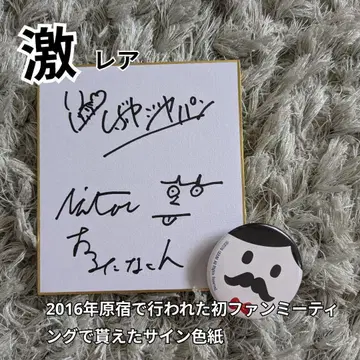 激 レア
しばやジャパン
あるたなくん
2016年原宿で行われた初ファンミーティ
ングで貰えたサイン色紙